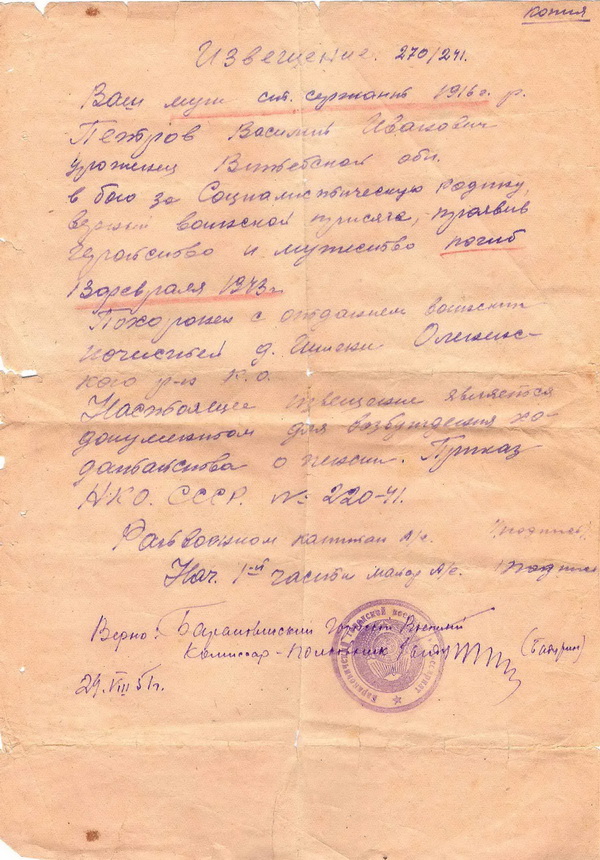 копия
Извещение. 270/241.
Ваш муж ст. сержант 1916 г. р.
Петров Василий Иванович
уроженец Витебской обл.
в бою за Социалистическую родину,
верный воинской присяге, проявив
геройство и мужество погиб
13 февраля 1943 г.
Похоронен с отданием воинских
почестей д. Оленинс-
кого р-на К.О.
Настоящее извещение является
документом для возбуждения хо-
датайства о пенсии. Приказ
Н.К.О. СССР. № 220-41.
Райвоенком капитан А/с. (подпись)
Нач. 1-й части майор А/с. подпись
Верно: Барановичский Городской Военный
Комиссар - Полковник
29.VIII 51 г.